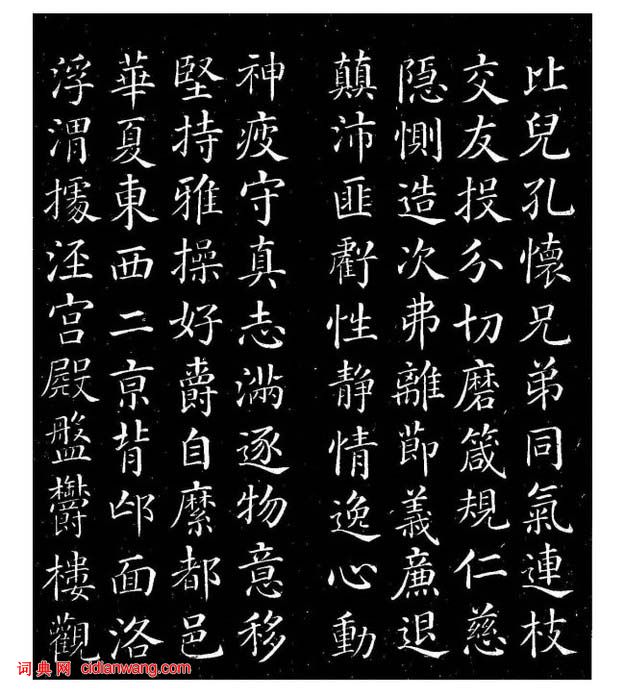 比兒孔懷兄弟同氣連枝
交友投分切磨箴規仁慈
隱惻造次弗離節義廉退
顛沛匪虧性靜情逸心動
神疲守真志滿逐物意移
堅持雅操好爵自縻都邑
華夏東西二京背邙面洛
浮渭據涇宮殿盤鬱樓觀
词典网 cidianwang.com